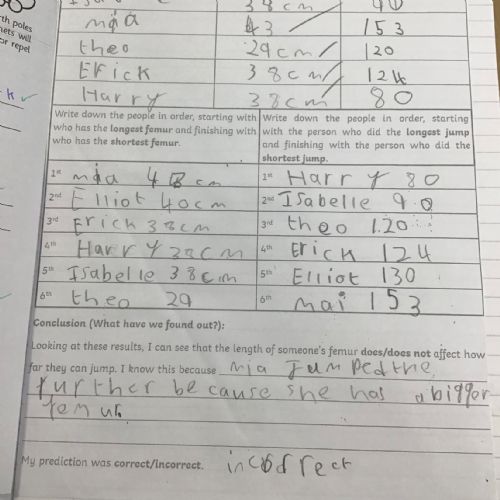 38cm 90
rth poles
nets will
or repel
mia 43 153
theo 29cm 120
Erick 38cm 124
Harry 38cm 80
Write down the people in order, starting with who has the longest femur and finishing with who has the shortest femur.
Write down the people in order, starting with the person who did the longest jump and finishing with the person who did the shortest jump.
1st mia 43 cm 1st Harry 80
2nd Elliot 40cm 2nd Isabelle 90
3rd Erick 38cm 3rd theo 120
4th Harry 38cm 4th Erick 124
5th Isabelle 38cm 5th Elliot 130
6th theo 29 6th mai 153
Conclusion (What have we found out?):
Looking at these results, I can see that the length of someone's femur does/does not affect how
far they can jump. I know this because mia Jumped the
further because she has a bigger
femur
My prediction was correct/incorrect. incorrect